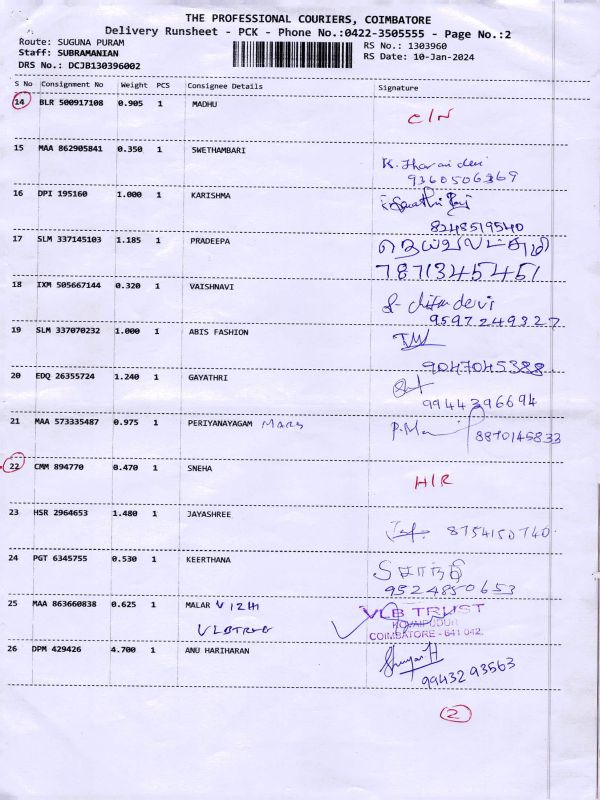 THE PROFESSIONAL COURIERS, COIMBATORE
Delivery Runsheet - PCK - Phone No.:0422-3505555 - Page No.:2
Route: SUGUNA PURAM
RS No.: 1303960
Staff: SUBRAMANIAN
RS Date: 10-Jan-2024
DRS No.: DCJB130396002
S No Consignment No Weight PCS Consignee Details Signature
14 BLR 500917108 0.905 1 MADHU C/N
15 MAA 862905841 0.350 1 SWETHAMBARI
9360506369
16 DPI 195160 1.000 1 KARISHMA
8248519540
17 SLM 337145103 1.185 1 PRADEEPA
7871345451
18 IXM 505667144 0.320 1 VAISHNAVI
9597249327
19 SLM 337070232 1.000 1 ABIS FASHION
9047045388
20 EDQ 26355724 1.240 1 GAYATHRI
9944396694
21 MAA 573335487 0.975 1 PERIYANAYAGAM Mary 8870145833
22 CMM 894770 0.470 1 SNEHA H/R
23 HSR 2964653 1.480 1 JAYASHREE 8754150740
24 PGT 6345755 0.530 1 KEERTHANA
9524850653
25 MAA 863660838 0.625 1 MALAR VIZHI
VLB TRUST
KOVAIPUDUR
COIMBATORE - 641 042.
26 DPM 429426 4.700 1 ANU HARIHARAN
9943293563
2